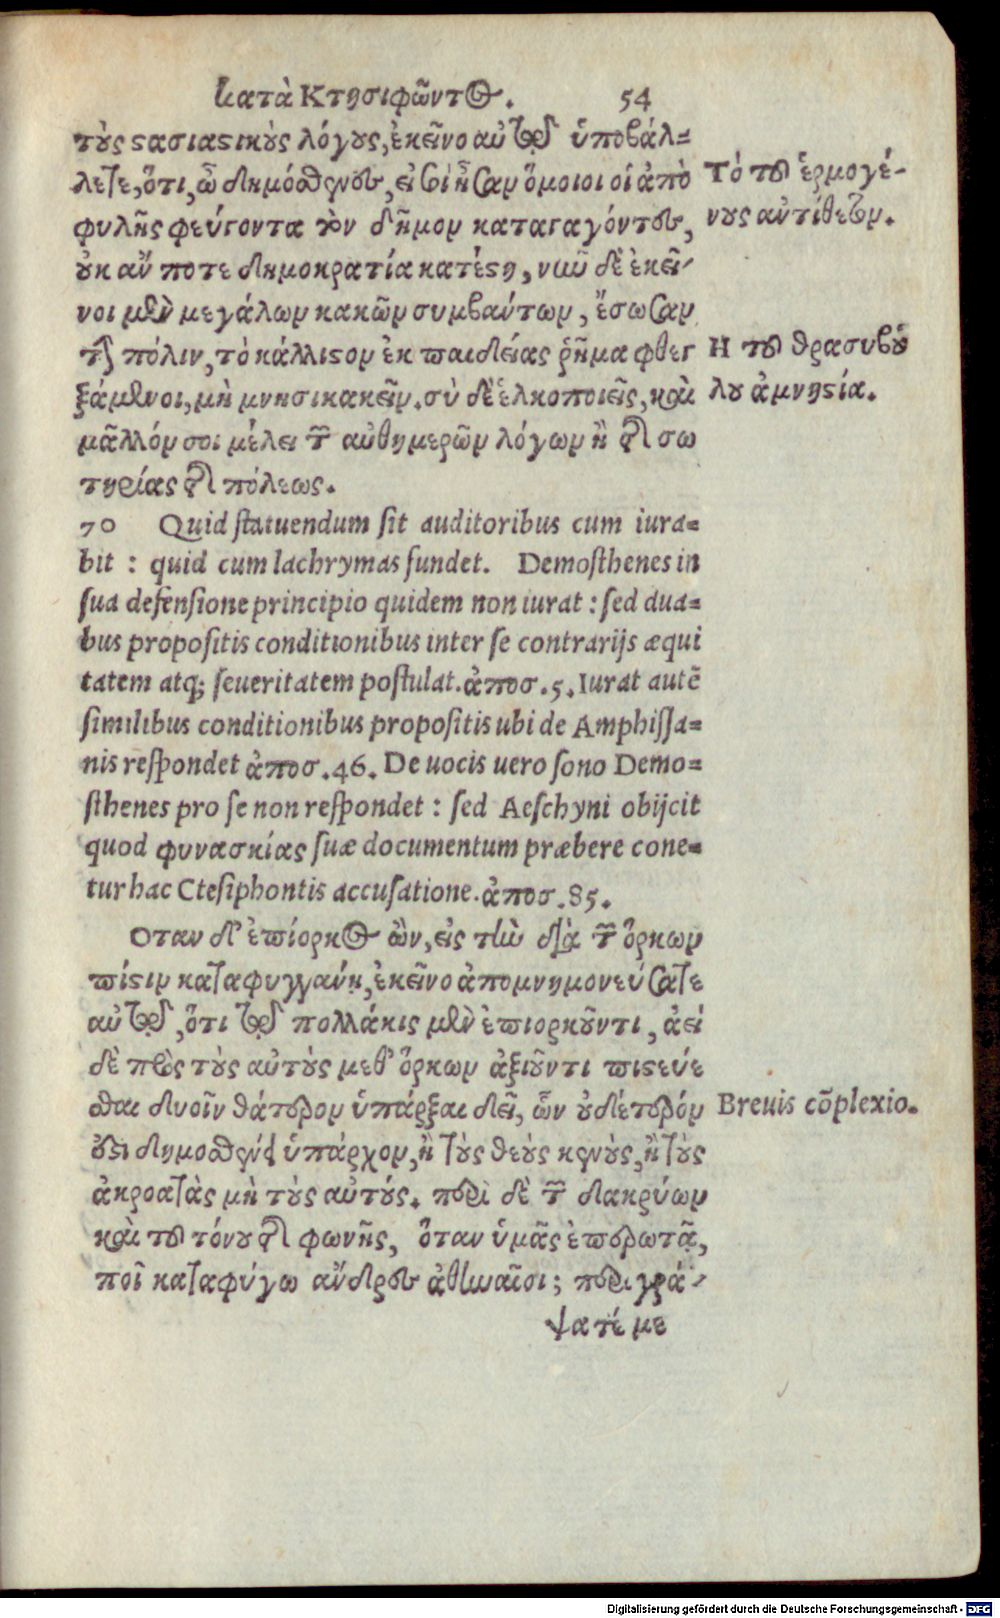 κατὰ Κτησιφῶντος. 54
τοὺς στασιαστικοὺς λόγους, ἐκεῖνο αὐτῷ ὑποβάλ-
λετε, ὅτι, ὦ δημόσθενες, εἰ οἷοι ἦσαν ὅμοιοι οἱ ἀπὸ
φυλῆς φεύγοντα τὸν δῆμον καταγαγόντες,
οὐκ ἄν ποτε δημοκρατία κατέστη, νῦν δὲ ἐκεῖ-
νοι μὲν μεγάλων κακῶν συμβάντων, ἔσωσαν
τὴν πόλιν, τὸ κάλλιστον ἐκ παιδείας ῥῆμα φθεγ
ξάμενοι, μὴ μνησικακεῖν. σὺ δὲ ἑλκοποιεῖς, καὶ
μᾶλλόν σοι μέλει τῶν αὐθημερῶν λόγων ἢ τῆς σω
τηρίας τῆς πόλεως.
Τὸ τοῦ ἑρμογέ-
νους ἀντίθετον.
Η τοῦ θρασυβού
λου ἀμνηστία.
70 Quid statuendum sit auditoribus cum iura=
bit : quid cum lachrymas fundet. Demosthenes in
sua defensione principio quidem non iurat : sed dua=
bus propositis conditionibus inter se contrarijs æqui
tatem atq; seueritatem postulat. ἀποσ. 5. Iurat autē
similibus conditionibus propositis ubi de Amphissa=
nis respondet ἀποσ. 46. De uocis uero sono Demo=
sthenes pro se non respondet : sed Aeschyni obijcit
quod φωνασκίας suæ documentum præbere cone=
tur hac Ctesiphontis accusatione. ἀποσ. 85.
Οταν δ' ἐπίορκος ὢν, εἰς τὴν διὰ τῶν ὅρκων
πίστιν καταφυγγάνῃ, ἐκεῖνο ἀπομνημονεύσατε
αὐτῷ, ὅτι τῷ πολλάκις μὲν ἐπιορκοῦντι, ἀεί
δὲ πρὸς τοὺς αὐτοὺς μεθ' ὅρκων ἀξιοῦντι πιστεύε
σθαι δυοῖν θάτερον ὑπάρξαι δεῖ, ὧν οὐδέτερόν
ἐστι δημοσθένει ὑπάρχον, ἢ τοὺς θεοὺς καινοὺς, ἢ τοὺς
ἀκροατὰς μὴ τοὺς αὐτούς. περὶ δὲ τῶν δακρύων
καὶ τοῦ τόνου τῆς φωνῆς, ὅταν ὑμᾶς ἐπερωτᾷ,
ποῖ καταφύγω ἄνδρες ἀθηναῖοι; περιγρά-
ψατέ με
Breuis cōplexio.
Digitalisierung gefördert durch die Deutsche Forschungsgemeinschaft - DFG